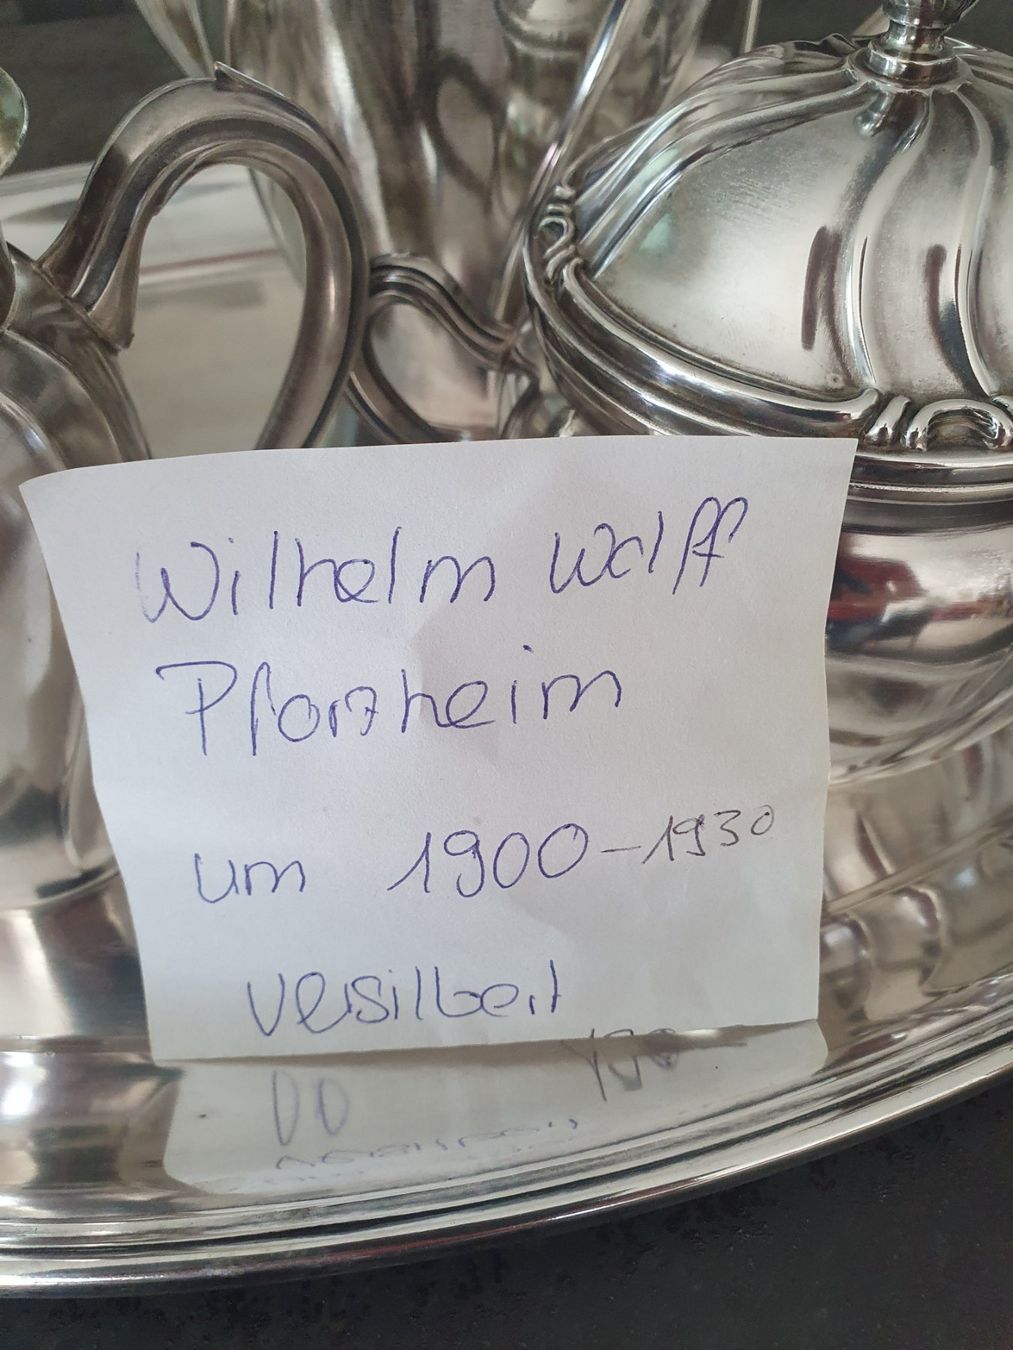 Wilhelm Wolff
Pforzheim
um 1900-1930
versilbert